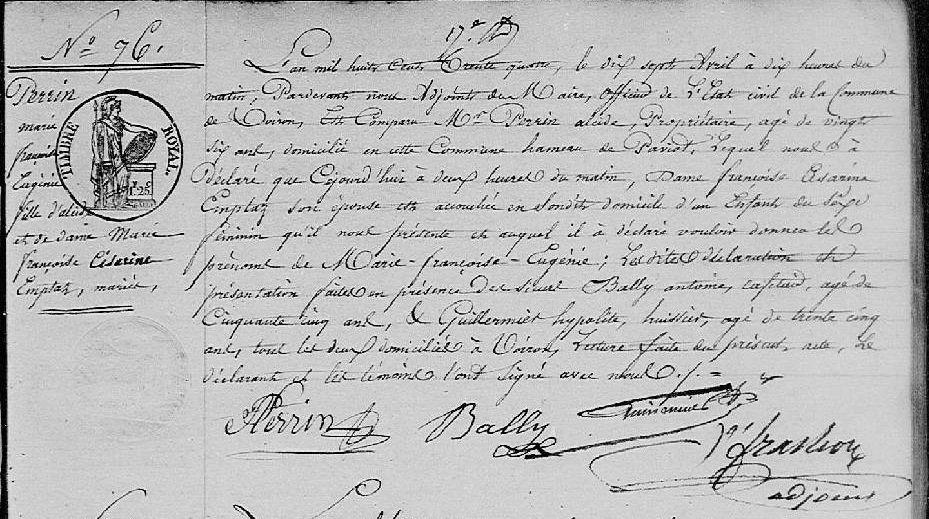 N° 96.
Perrin
marie
françoise
Eugénie
fille d'alcide
et de dame Marie
françoise Césarine
Emptaz, mariés,
TIMBRE ROYAL
17e
L'an mil huit Cent Trente quatre, le dix sept Avril à dix heures du
matin, Pardevant nous Adjoint du Maire, officier de L'Etat civil de la Commune
de Voiron, Est Comparu Mr Perrin alcide, Propriétaire, agé de vingt
six ans, domicilié en cette Commune hameau de Paviot, Lequel nous à
déclaré que Cejourd'hui à deux heures du matin, Dame françoise Césarine
Emptaz son épouse est accouchée en sondit domicile d'un Enfant du Sexe
féminin qu'il nous présente et auquel il à déclaré vouloir donner les
prénoms de Marie-françoise-Eugénie; Lesdites déclaration et
présentation faites en présence des sieurs Bally antoine, agé de
Cinquante cinq ans, & Guillermier hypolite, huissier, agé de trente cinq
ans, tous les deux domiciliés à Voiron, Lecture faite du présent acte, Le
déclarant et les témoins l'ont signé avec nous ./.
Perrin
Bally
adjoint